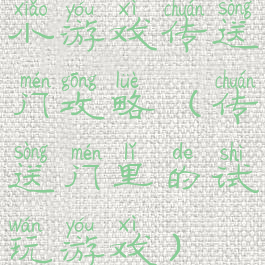 xiǎo yóu xì chuán sòng
小游戏传送
mén gōng lüè chuán
门攻略（传
sòng mén lǐ de shì
送门里的试
wán yóu xì
玩游戏）